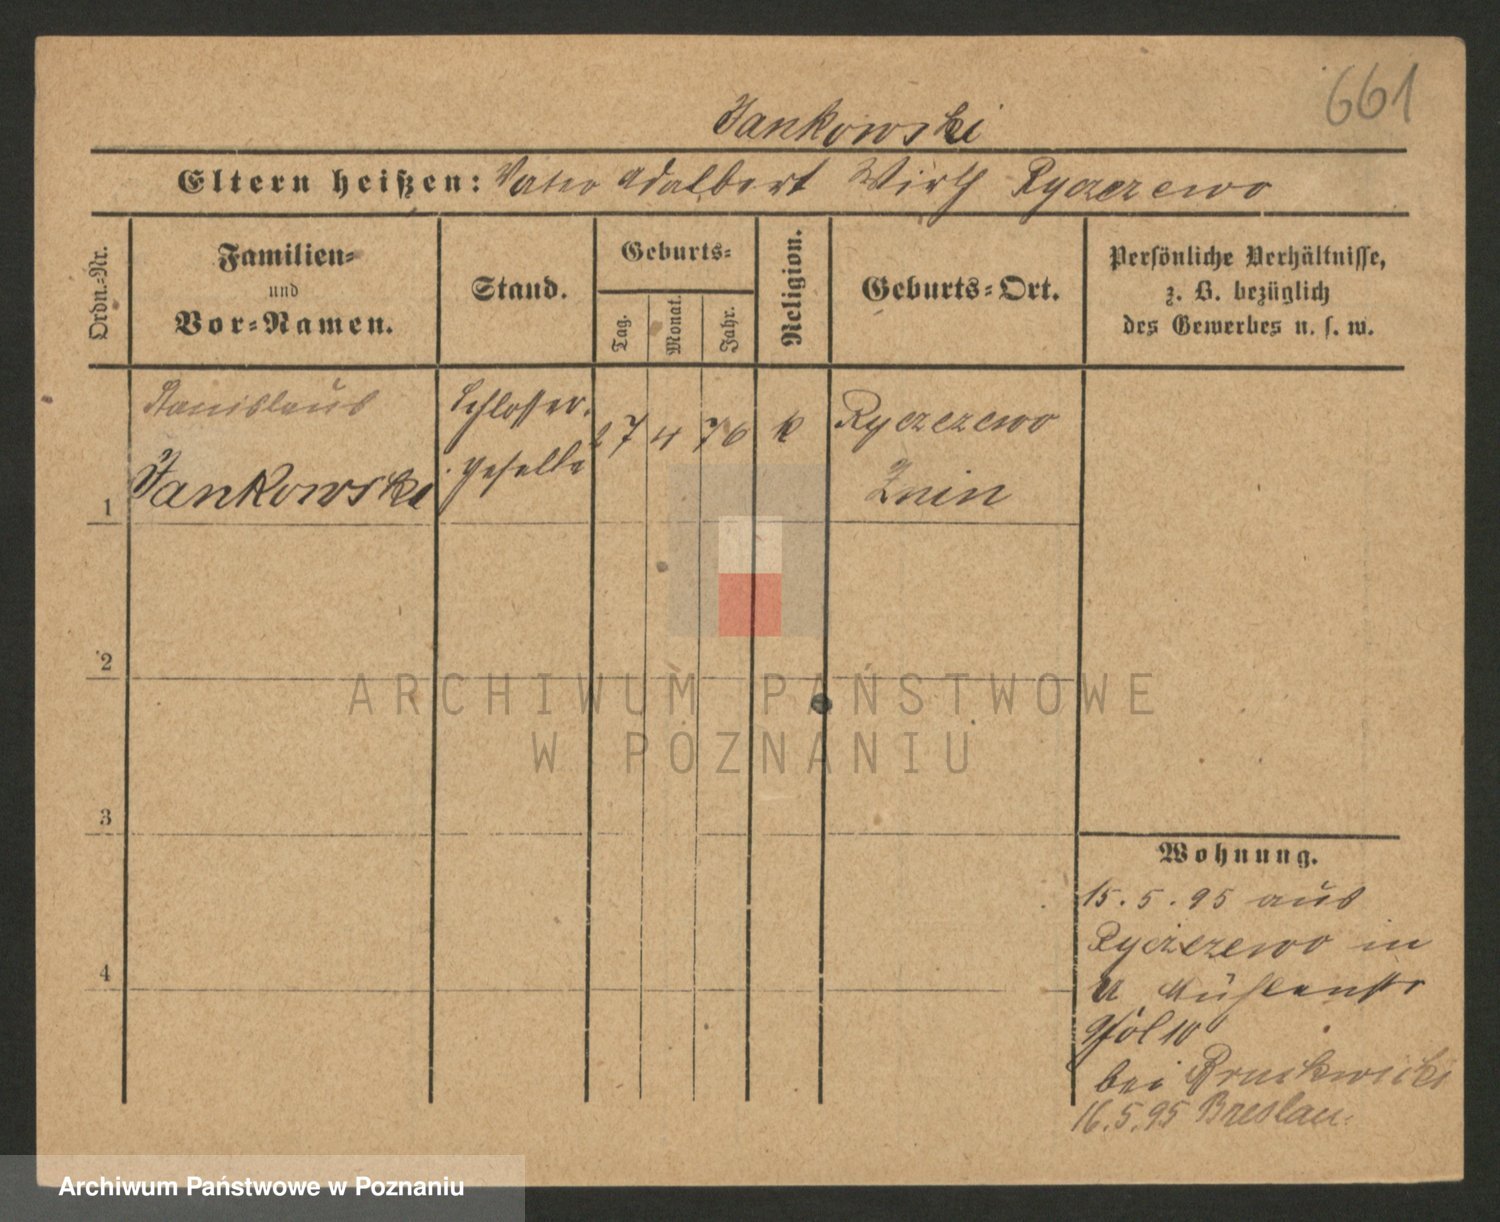 661
Jankowski
Eltern heißen: Vater Adalbert Wirth Ryczezewo
Ordn.-Nr.
Familien-
und
Vor-Namen.
Stand.
Geburts-
Tag.
Monat.
Jahr.
Religion.
Geburts-Ort.
Persönliche Verhältnisse,
z. B. bezüglich
des Gewerbes u. s. w.
Stanislaus
Schlosser.
27 4 76 k
Ryczezewo
1 Jankowski
geselle
Znin
2
ARCHIWUM PAŃSTWOWE
W POZNANIU
3
Wohnung.
15. 5. 95 aus
Ryczezewo in
4
U Mühlenstr
10
bei
16.5.95 Breslau.
Archiwum Państwowe w Poznaniu